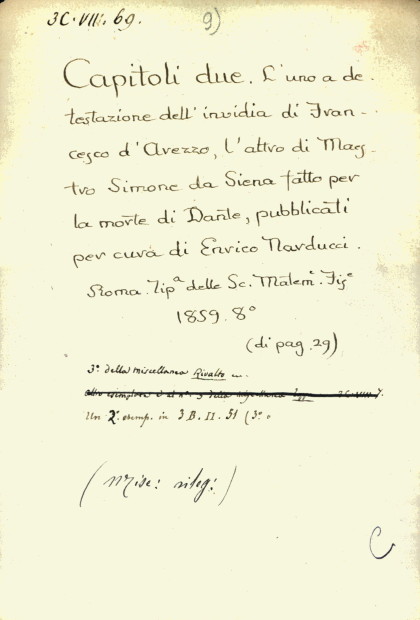 3C. VIII. 69.
9)
Capitoli due. L'uno a de-
testazione dell'invidia di Fran-
cesco d'Arezzo, l'altro di Maes-
tro Simone da Siena fatto per
la morte di Dante, pubblicati
per cura di Enrico Narducci.
Roma. Tipª delle Sc. Matemͤ. Fisͤ
1859. 8º
(di pag. 29)
3º della miscellanea Rivalto
Un 2º esemp. in 3 B. II. 51 (3º
C